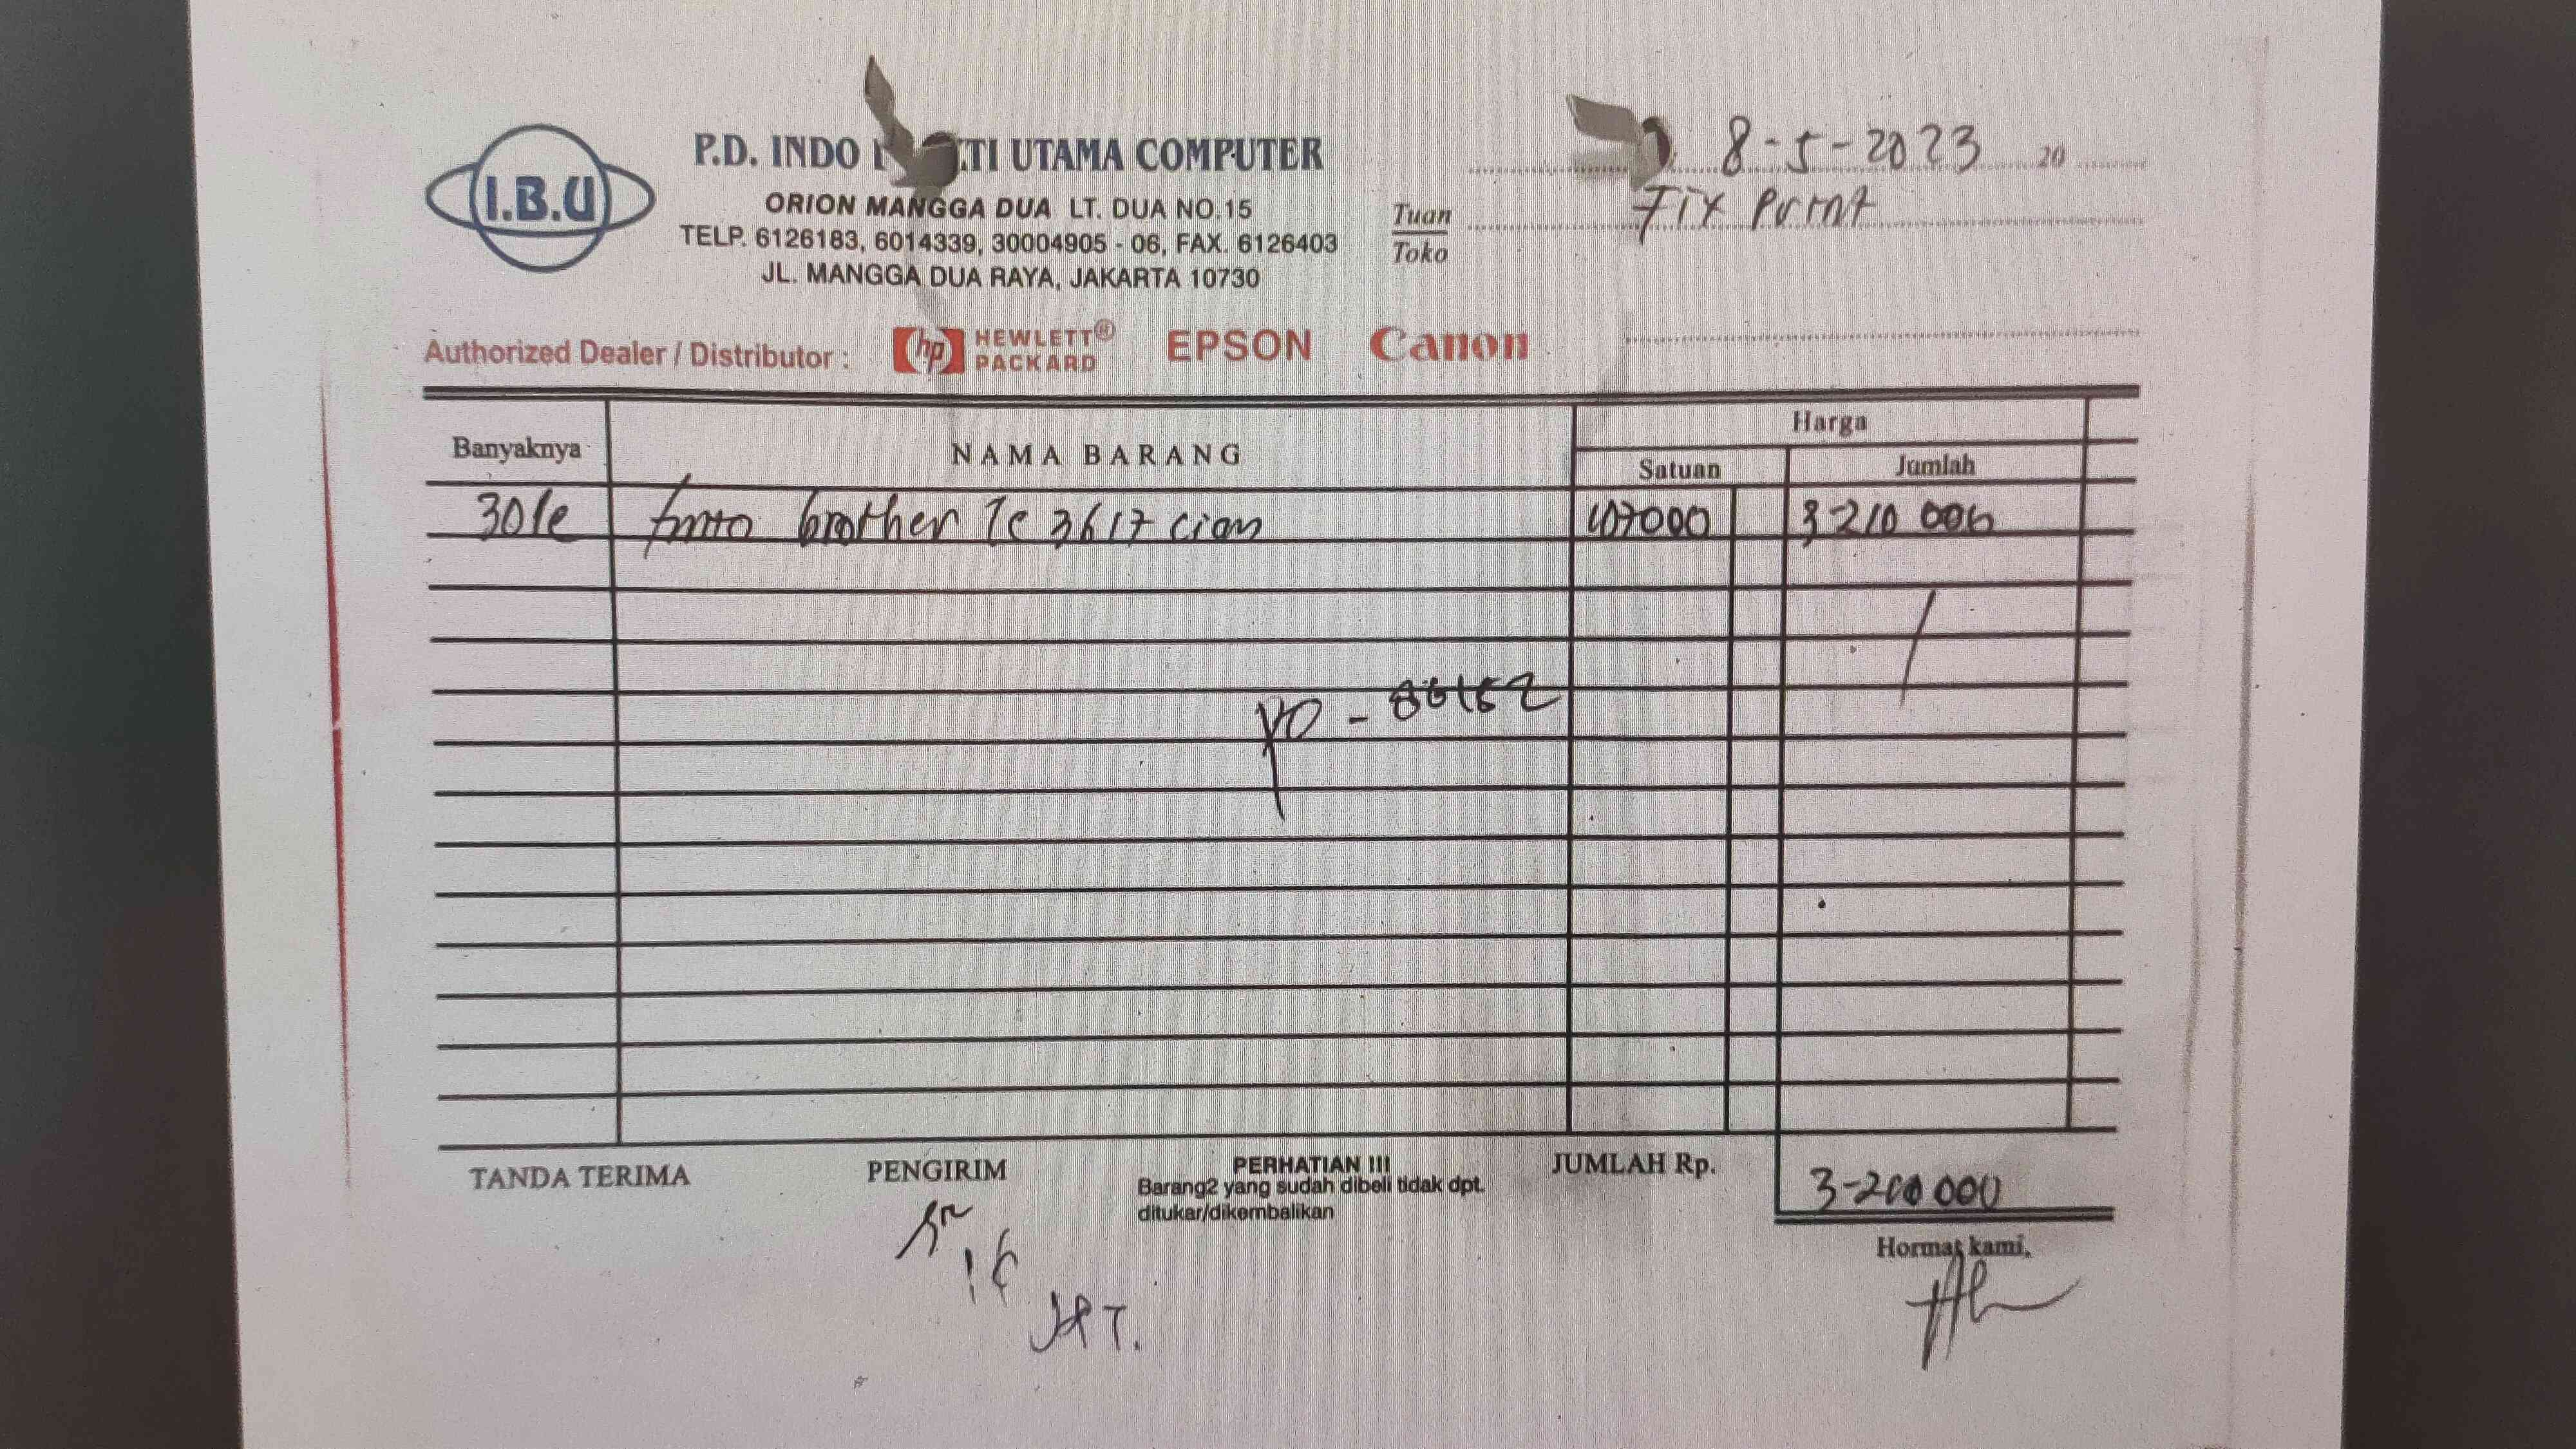 I.B.U
P.D. INDO TI UTAMA COMPUTER
ORION MANGGA DUA LT. DUA NO.15
TELP. 6126183, 6014339, 30004905 - 06, FAX. 6126403
JL. MANGGA DUA RAYA, JAKARTA 10730
8-5-2023 20
Tuan
Toko
Fix Print
Authorized Dealer / Distributor : hp HEWLETT® PACKARD EPSON Canon
Banyaknya NAMA BARANG Harga
Satuan Jumlah
brother lc 3617 cian 107000 3210 000
PO - 86152
TANDA TERIMA PENGIRIM PERHATIAN !!! JUMLAH Rp.
Barang2 yang sudah dibeli tidak dpt.
ditukar/dikembalikan
Hormat kami,